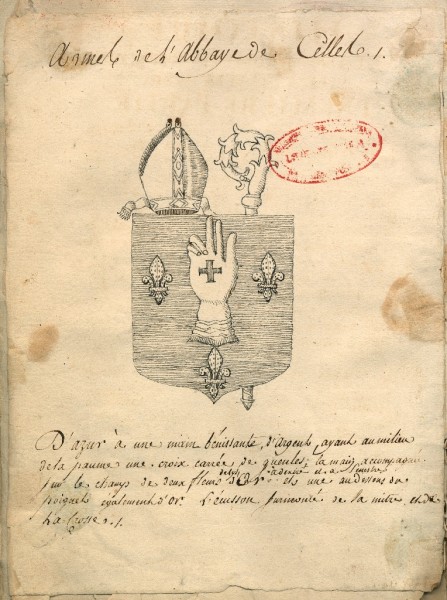 Armes de l'Abbaye de Celles. 1.
D'azur à une main bénissante, d'argent, ayant au milieu
de la paume une croix carrée de gueules; la main accompagnée
sur le champ de deux fleurs de lys d'or à dextre et à senestre et une au dessous du
poignet également d'or. L'écusson surmonté de la mitre et de
la Crosse. 1.